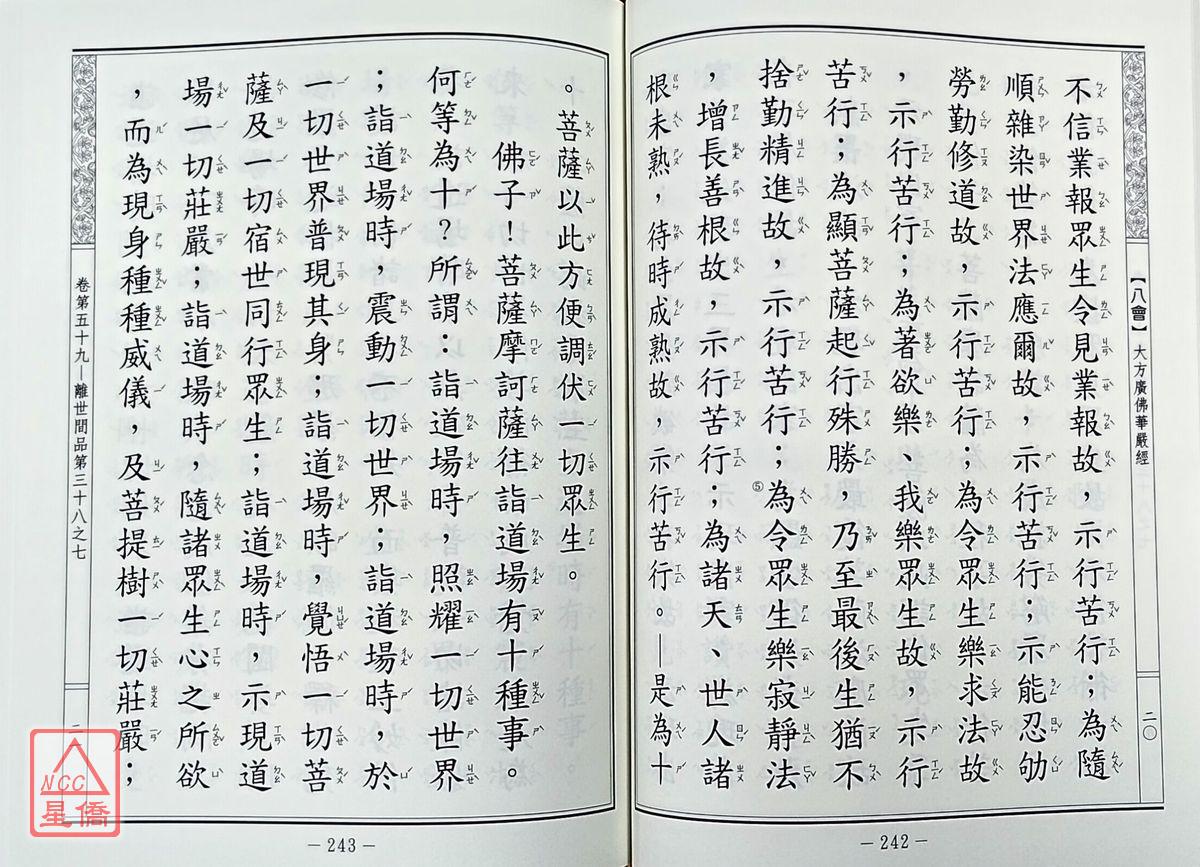 【八會】大方廣佛華嚴經
二〇
不信業報眾生令見業報故，示行苦行；為隨
順雜染世界法應爾故，示行苦行；示能忍劬
勞勤修道故，示行苦行；為令眾生樂求法故
，示行苦行；為著欲樂、我樂眾生故，示行
苦行；為顯菩薩起行殊勝，乃至最後生猶不
捨勤精進故，示行苦行；⑤為令眾生樂寂靜法
，增長善根故，示行苦行；為諸天、世人諸
根未熟，待時成熟故，示行苦行。—是為十
－242－
。菩薩以此方便調伏一切眾生。
佛子！菩薩摩訶薩往詣道場有十種事。
何等為十？所謂：詣道場時，照耀一切世界
；詣道場時，震動一切世界；詣道場時，於
一切世界普現其身；詣道場時，覺悟一切菩
薩及一切宿世同行眾生；詣道場時，示現道
場一切莊嚴；詣道場時，隨諸眾生心之所欲
，而為現身種種威儀，及菩提樹一切莊嚴；
卷第五十九—離世間品第三十八之七
－243－
NCC
星僑